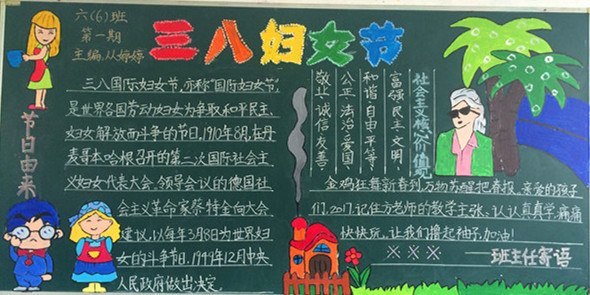 六(6)班
第一期
主编:从婷婷
三八妇女节
节日由来
三八国际妇女节,亦称"国际妇女节",
是世界各国劳动妇女为争取和平民主、
妇女解放而斗争的节日,1910年8月,在丹
麦哥本哈根召开的第二次国际社会主
义妇女代表大会,领导会议的德国社
会主义革命家蔡特金向大会
建议,以每年3月8日为世界妇
女的斗争节日,1949年12月中央
人民政府做出决定。
社会主义核心价值观
富强、民主、文明、
和谐、自由、平等、
公正、法治、爱国、
敬业、诚信、友善
金鸡狂舞新春到,万物苏醒把春报。亲爱的孩子
们,2017,记住方老师的教学主张、认认真真学,痛痛
快快玩,让我们撸起袖子,加油!
※※※ 班主任寄语